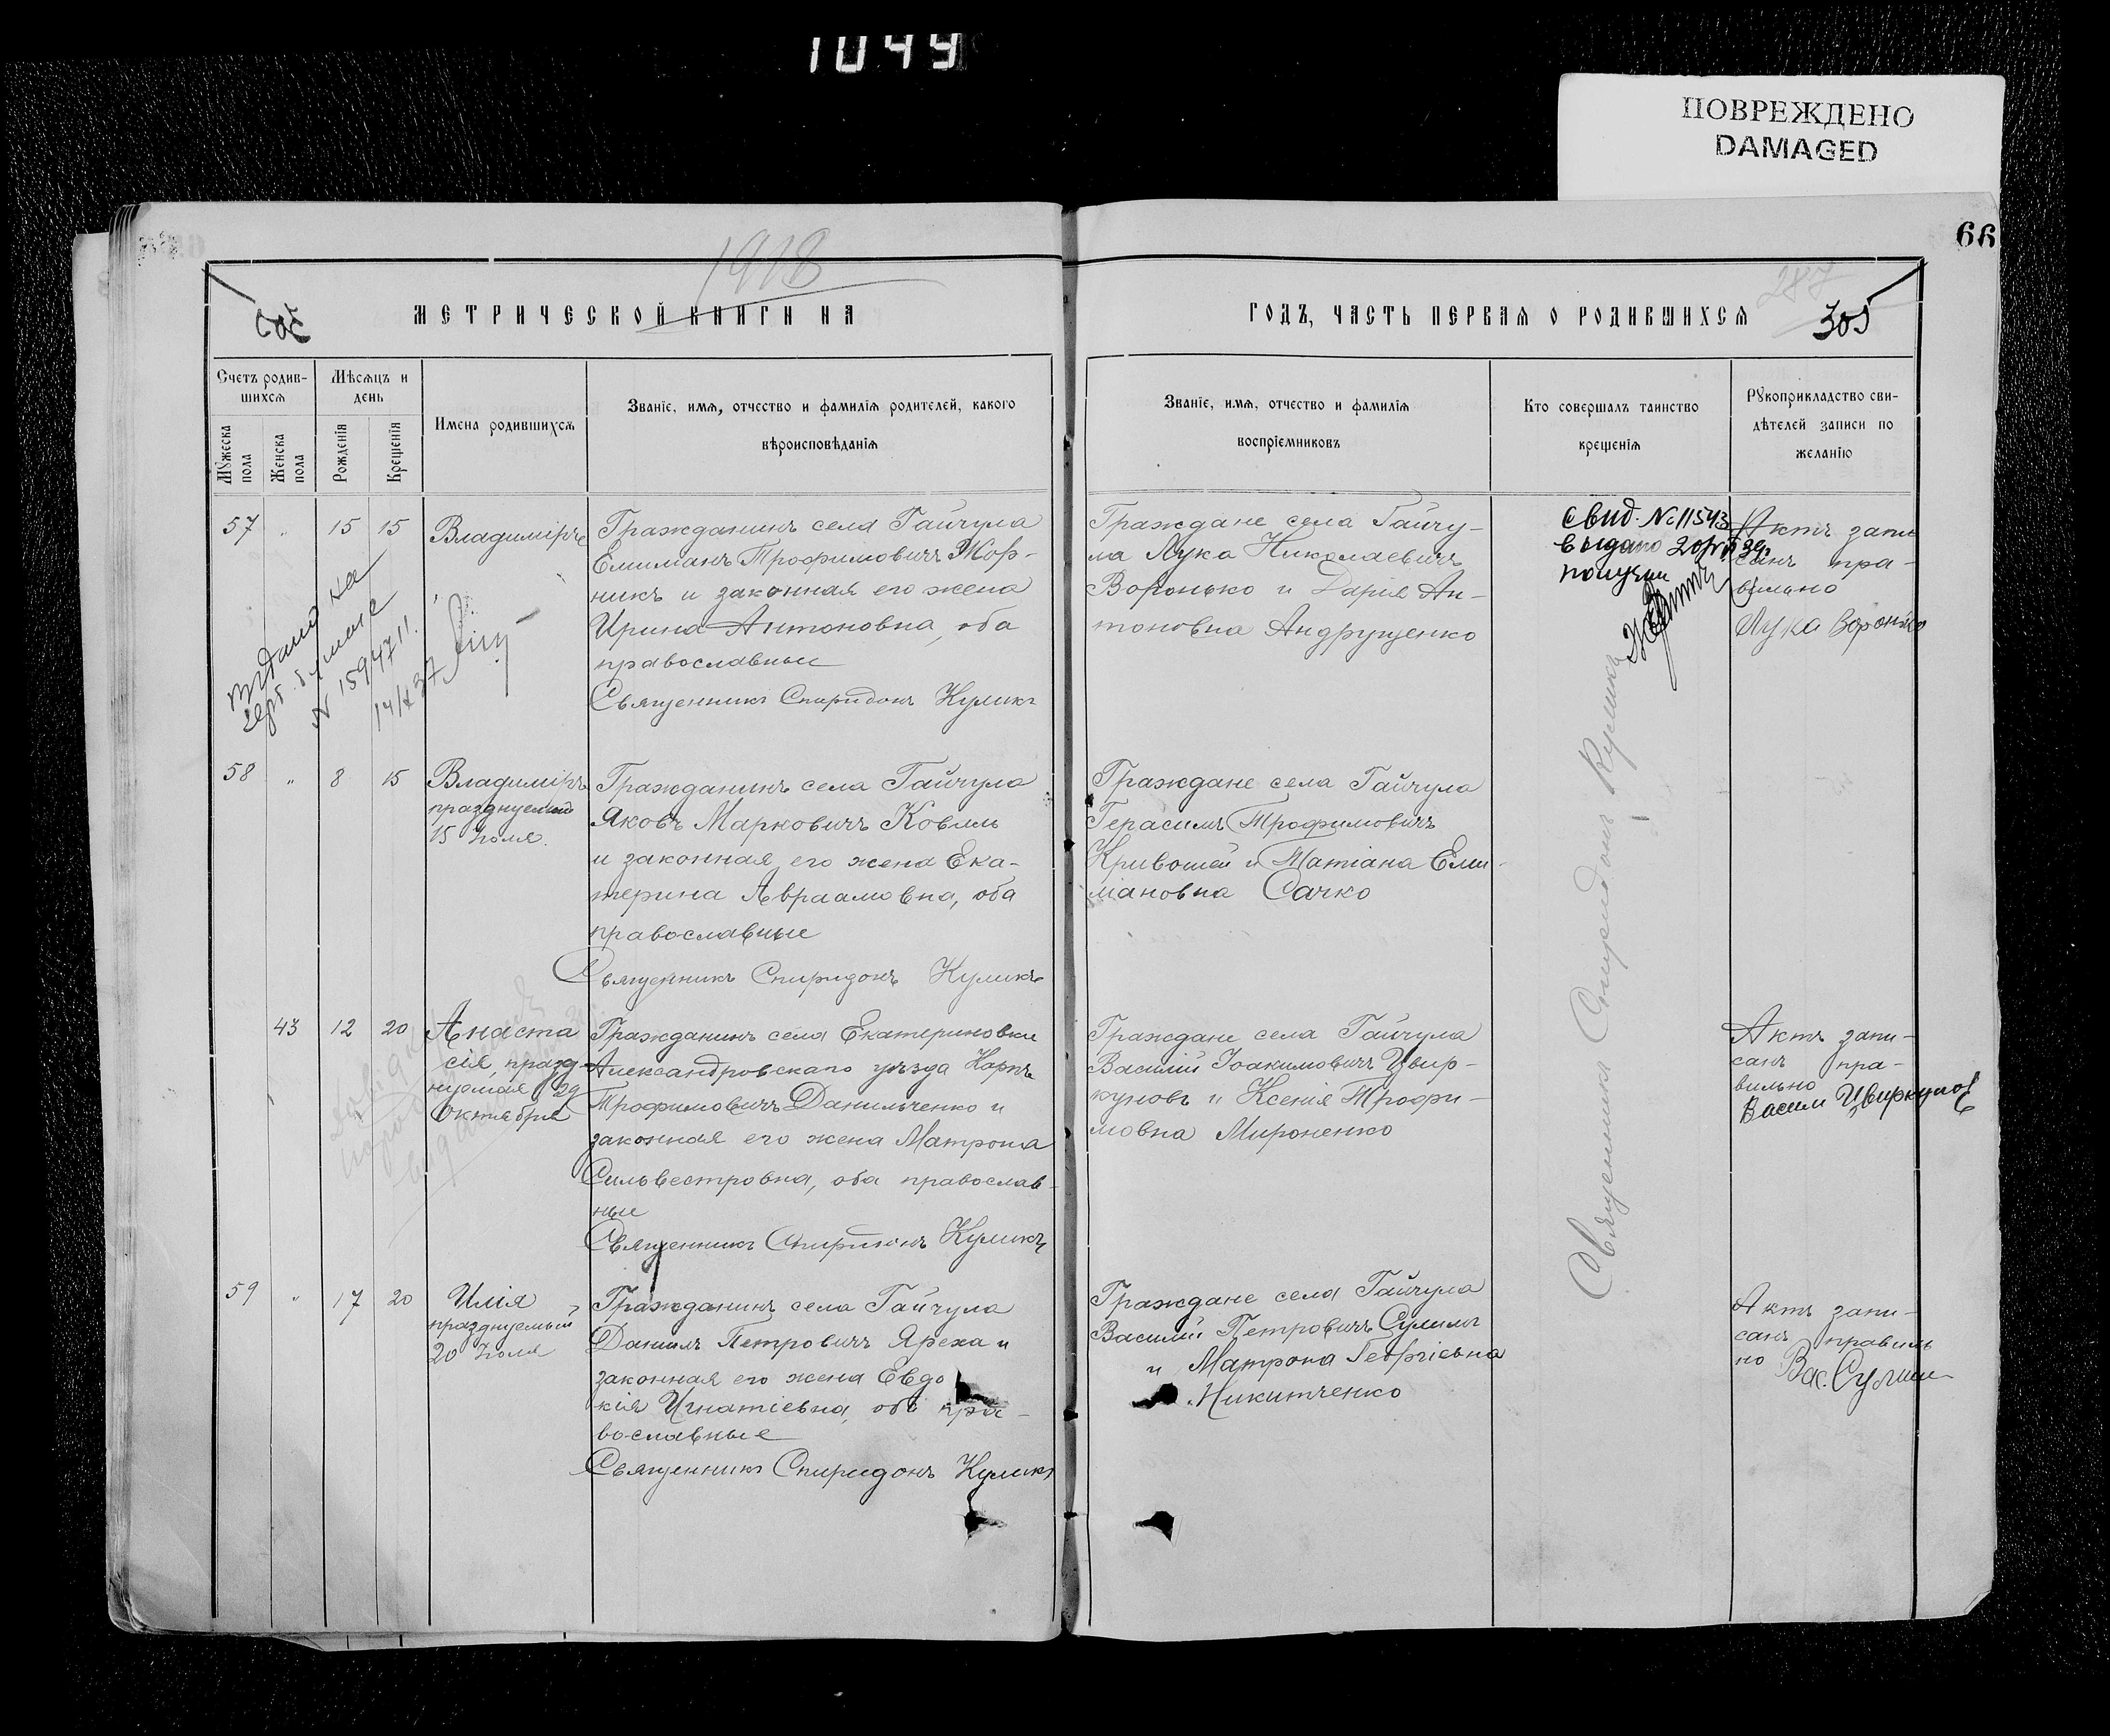 1049
ПОВРЕЖДЕНО
DAMAGED
66
1918
287
305
МЕТРИЧЕСКОЙ КНИГИ НА
ГОДЪ, ЧАСТЬ ПЕРВАЯ О РОДИВШИХСЯ
Счетъ родив-
шихся
Мужеска
пола
Женска
пола
Мѣсяцъ и
день
Рожденія
Крещенія
Имена родившихся
Званіе, имя, отчество и фамилія родителей, какого
вѣроисповѣданія
Званіе, имя, отчество и фамилія
воспріемниковъ
Кто совершалъ таинство
крещенія
Рукоприкладство сви-
дѣтелей записи по
желанію
57 " 15 15
Владиміръ
Гражданинъ села Гайчула
Емиліанъ Трофимовичъ Жор-
никъ и законная его жена
Ирина Антоновна, оба
православные
Священникъ Спиридонъ Куликъ
Граждане села Гайчу-
ла Лука Николаевичъ
Воронько и Дарія Ан-
тоновна Андрущенко
Свид. № 11543
выдано
получил
Актъ запи
санъ пра-
вильно
Лука Воронько
видано на
бумаге
N 1594711
37
58 " 8 15
Владиміръ
празднуемый
15 Іюля.
Гражданинъ села Гайчула
Яковъ Марковичъ Коваль
и законная его жена Ека-
терина Авраамовна, оба
православные
Священникъ Спиридонъ Куликъ
Граждане села Гайчула
Герасимъ Трофимовичъ
Кривошей и Татіана Еми-
ліановна Сачко
Священникъ Спиридонъ Куликъ
43 12 20
Анаста
сія, празд-
нуемая 29
Октября
Гражданинъ села Екатериновки
Александровскаго уѣзда Карпъ
Трофимовичъ Данильченко и
законная его жена Матрона
Сильвестровна, оба православ-
ные
Священникъ Спиридонъ Куликъ
Граждане села Гайчула
Василій Іоакимовичъ Цвир-
куновъ и Ксенія Трофи-
мовна Мироненко
Актъ запи-
санъ пра-
вильно
Васили Цвиркунов
59 " 17 20
Илія
празднуемый
20 Іюля
Гражданинъ села Гайчула
Даніилъ Петровичъ Яреха и
законная его жена Евдо
кія Игнатіевна, оба пра-
вославные
Священникъ Спиридонъ Куликъ
Граждане села Гайчула
Василій Петровичъ Сулима
и Матрона Георгіевна
Никитченко
Актъ запи-
санъ правиль
но Вас. Сулима